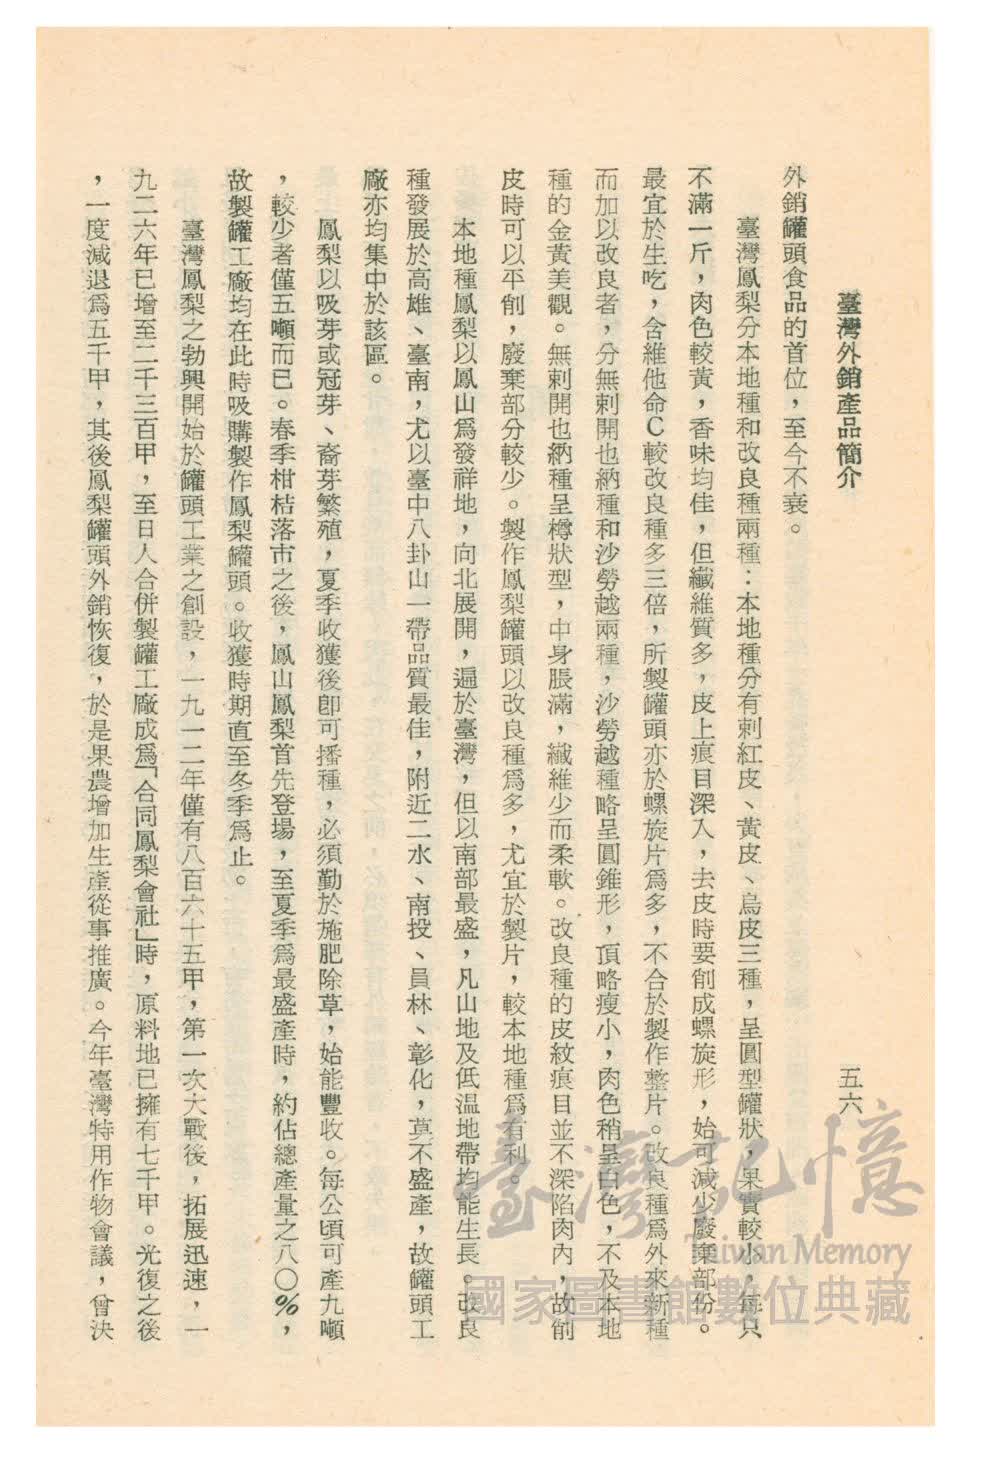 臺灣外銷產品簡介
五六
外銷罐頭食品的首位，至今不衰。
臺灣鳳梨分本地種和改良種兩種：本地種分有刺紅皮、黃皮、烏皮三種，呈圓型罐狀，果實較小，每只
不滿一斤，肉色較黃，香味均佳，但纖維質多，皮上痕目深入，去皮時要削成螺旋形，始可減少廢棄部份。
最宜於生吃，含維他命C較改良種多三倍，所製罐頭亦於螺旋片爲多，不合於製作整片。改良種爲外來新種
而加以改良者，分無刺開也納種和沙勞越兩種，沙勞越種略呈圓錐形，頂略瘦小，肉色稍呈白色，不及本地
種的金黃美觀。無刺開也納種呈樽狀型，中身脹滿，纖維少而柔軟。改良種的皮紋痕目並不深陷肉內，故削
皮時可以平削，廢棄部分較少。製作鳳梨罐頭以改良種爲多，尤宜於製片，較本地種爲有利。
本地種鳳梨以鳳山爲發祥地，向北展開，遍於臺灣，但以南部最盛，凡山地及低温地帶均能生長。改良
種發展於高雄、臺南，尤以臺中八卦山一帶品質最佳，附近二水、南投、員林、彰化，莫不盛產，故罐頭工
廠亦均集中於該區。
鳳梨以吸芽或冠芽、裔芽繁殖，夏季收獲後卽可播種，必須勤於施肥除草，始能豐收。每公頃可產九噸
，較少者僅五噸而已。春季柑桔落市之後，鳳山鳳梨首先登場，至夏季爲最盛產時，約佔總產量之八〇%，
故製罐工廠均在此時吸購製作鳳梨罐頭。收獲時期直至冬季爲止。
臺灣鳳梨之勃興開始於罐頭工業之創設，一九一二年僅有八百六十五甲，第一次大戰後，拓展迅速，一
九二六年已增至二千三百甲，至日人合併製罐工廠成爲「合同鳳梨會社」時，原料地已擁有七千甲。光復之後
，一度減退爲五千甲，其後鳳梨罐頭外銷恢復，於是果農增加生產從事推廣。今年臺灣特用作物會議，曾決
臺灣記憶
Taiwan Memory
國家圖書館數位典藏